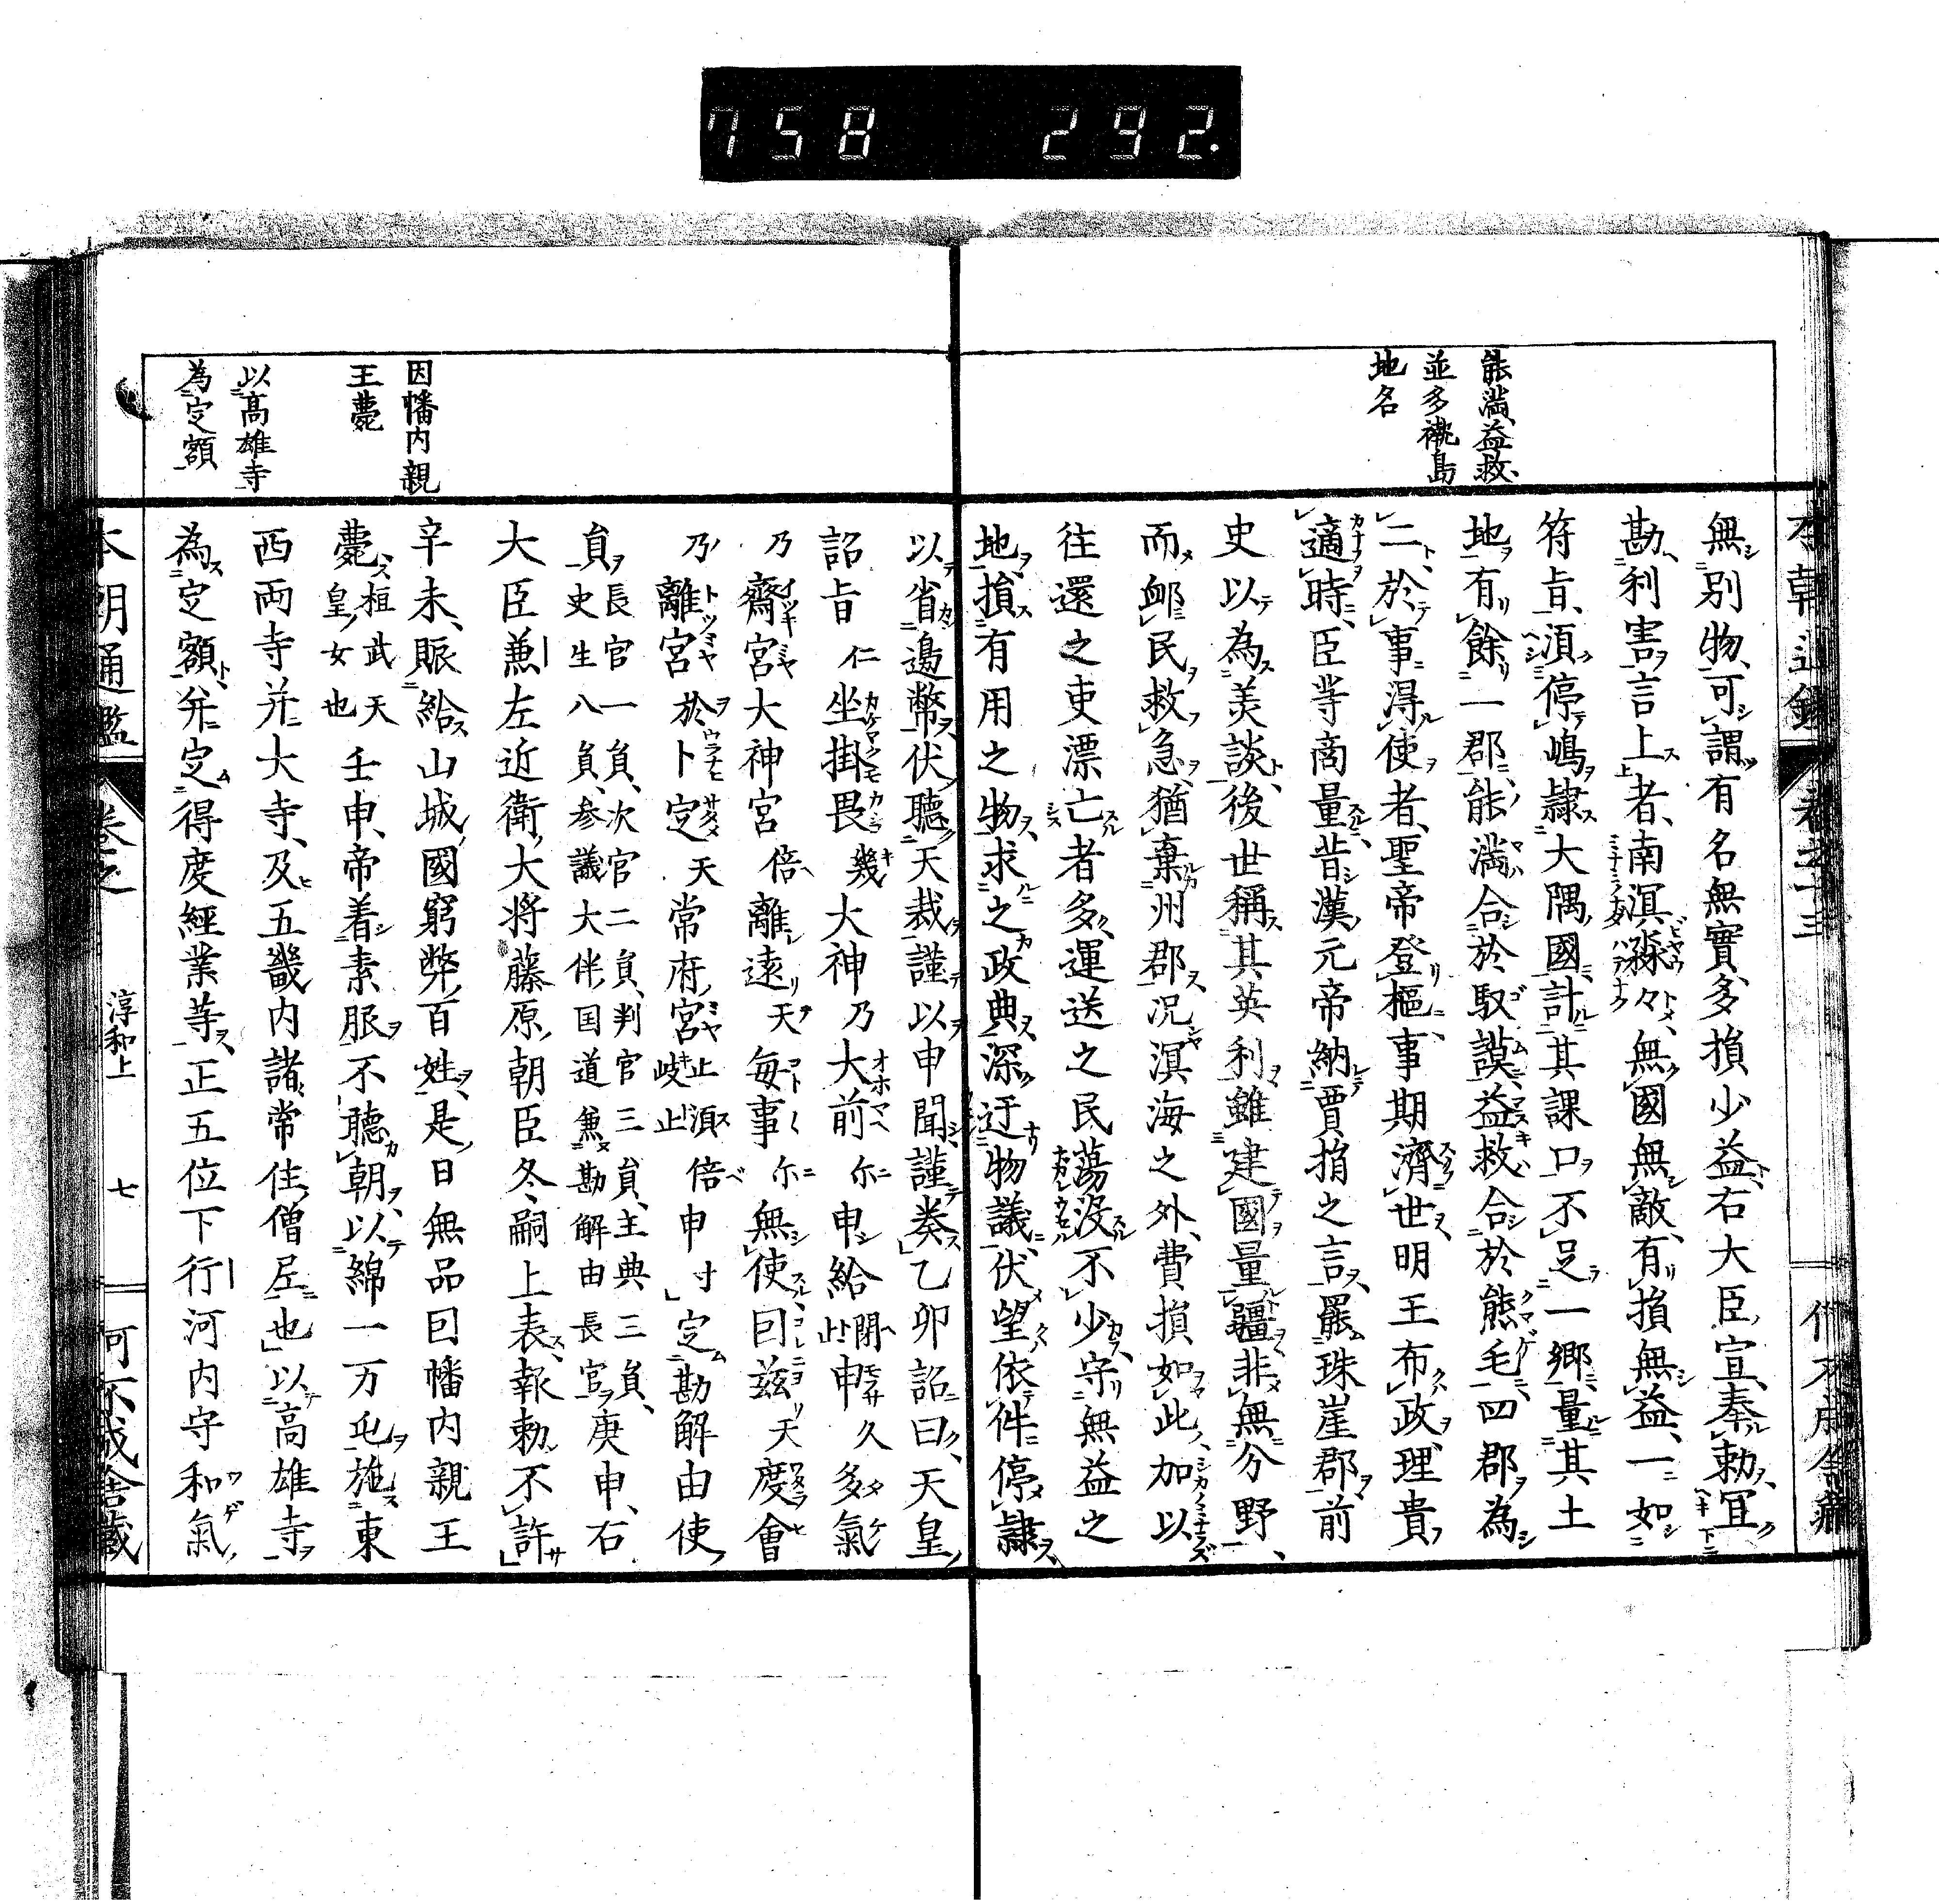 758 292.
能満益救、
並多褹島
地名
無別物、可謂有名無實、多損少益、右大臣宣、奉勅、冝
勘利害言上者、南溟淼々、無國無敵、有損無益、一如
符旨、湏停嶋隷大隅國、計其課口不足一郷、量其土
地有餘一郡、能満合於馭謨、益救合於熊毛、四郡為
二、於事得使者、聖帝登樞、事期濟世、明王布政、理貴
適時、臣等商量、昔漢元帝納賈捐之言、罷珠崖郡、前
史以為美談、後世稱其英利、雖建國量疆、非無分野、
而邮民救急、猶棄州郡、況溟海之外、費損如此、加以
往還之吏漂亡者多、運送之民蕩没不少、守無益之
地、損有用之物、求之政典、深迂物議、伏望依件停隷
以省邉幣、伏聽天裁、謹以申聞謹奏、乙卯詔曰、天皇
詔旨仁坐掛畏幾大神乃大前尓申給閇止申久多氣
乃齋宮大神宮倍離遠天毎事尓無使曰兹天度會
乃離宮於卜定天常府宮止湏倍岐止申寸定勘解由使
員長官一員、次官二員、判官三員、主典三員、
史生八員、参議大伴国道兼勘解由長官庚申、右
大臣兼左近衛大将藤原朝臣冬嗣上表、報勅不許
辛未、賑給山城國窮弊百姓、是日無品因幡内親王
薨、桓武天
皇女也壬申、帝着素服不聽朝、以綿一万屯施東
西両寺并大寺、及五畿内諸常住僧尼也、以高雄寺
為定額、并定得度經業等、正五位下行河内守和氣
因幡内親
王薨
以高雄寺
為定額
本朝通鑑 卷之 淳和上 七